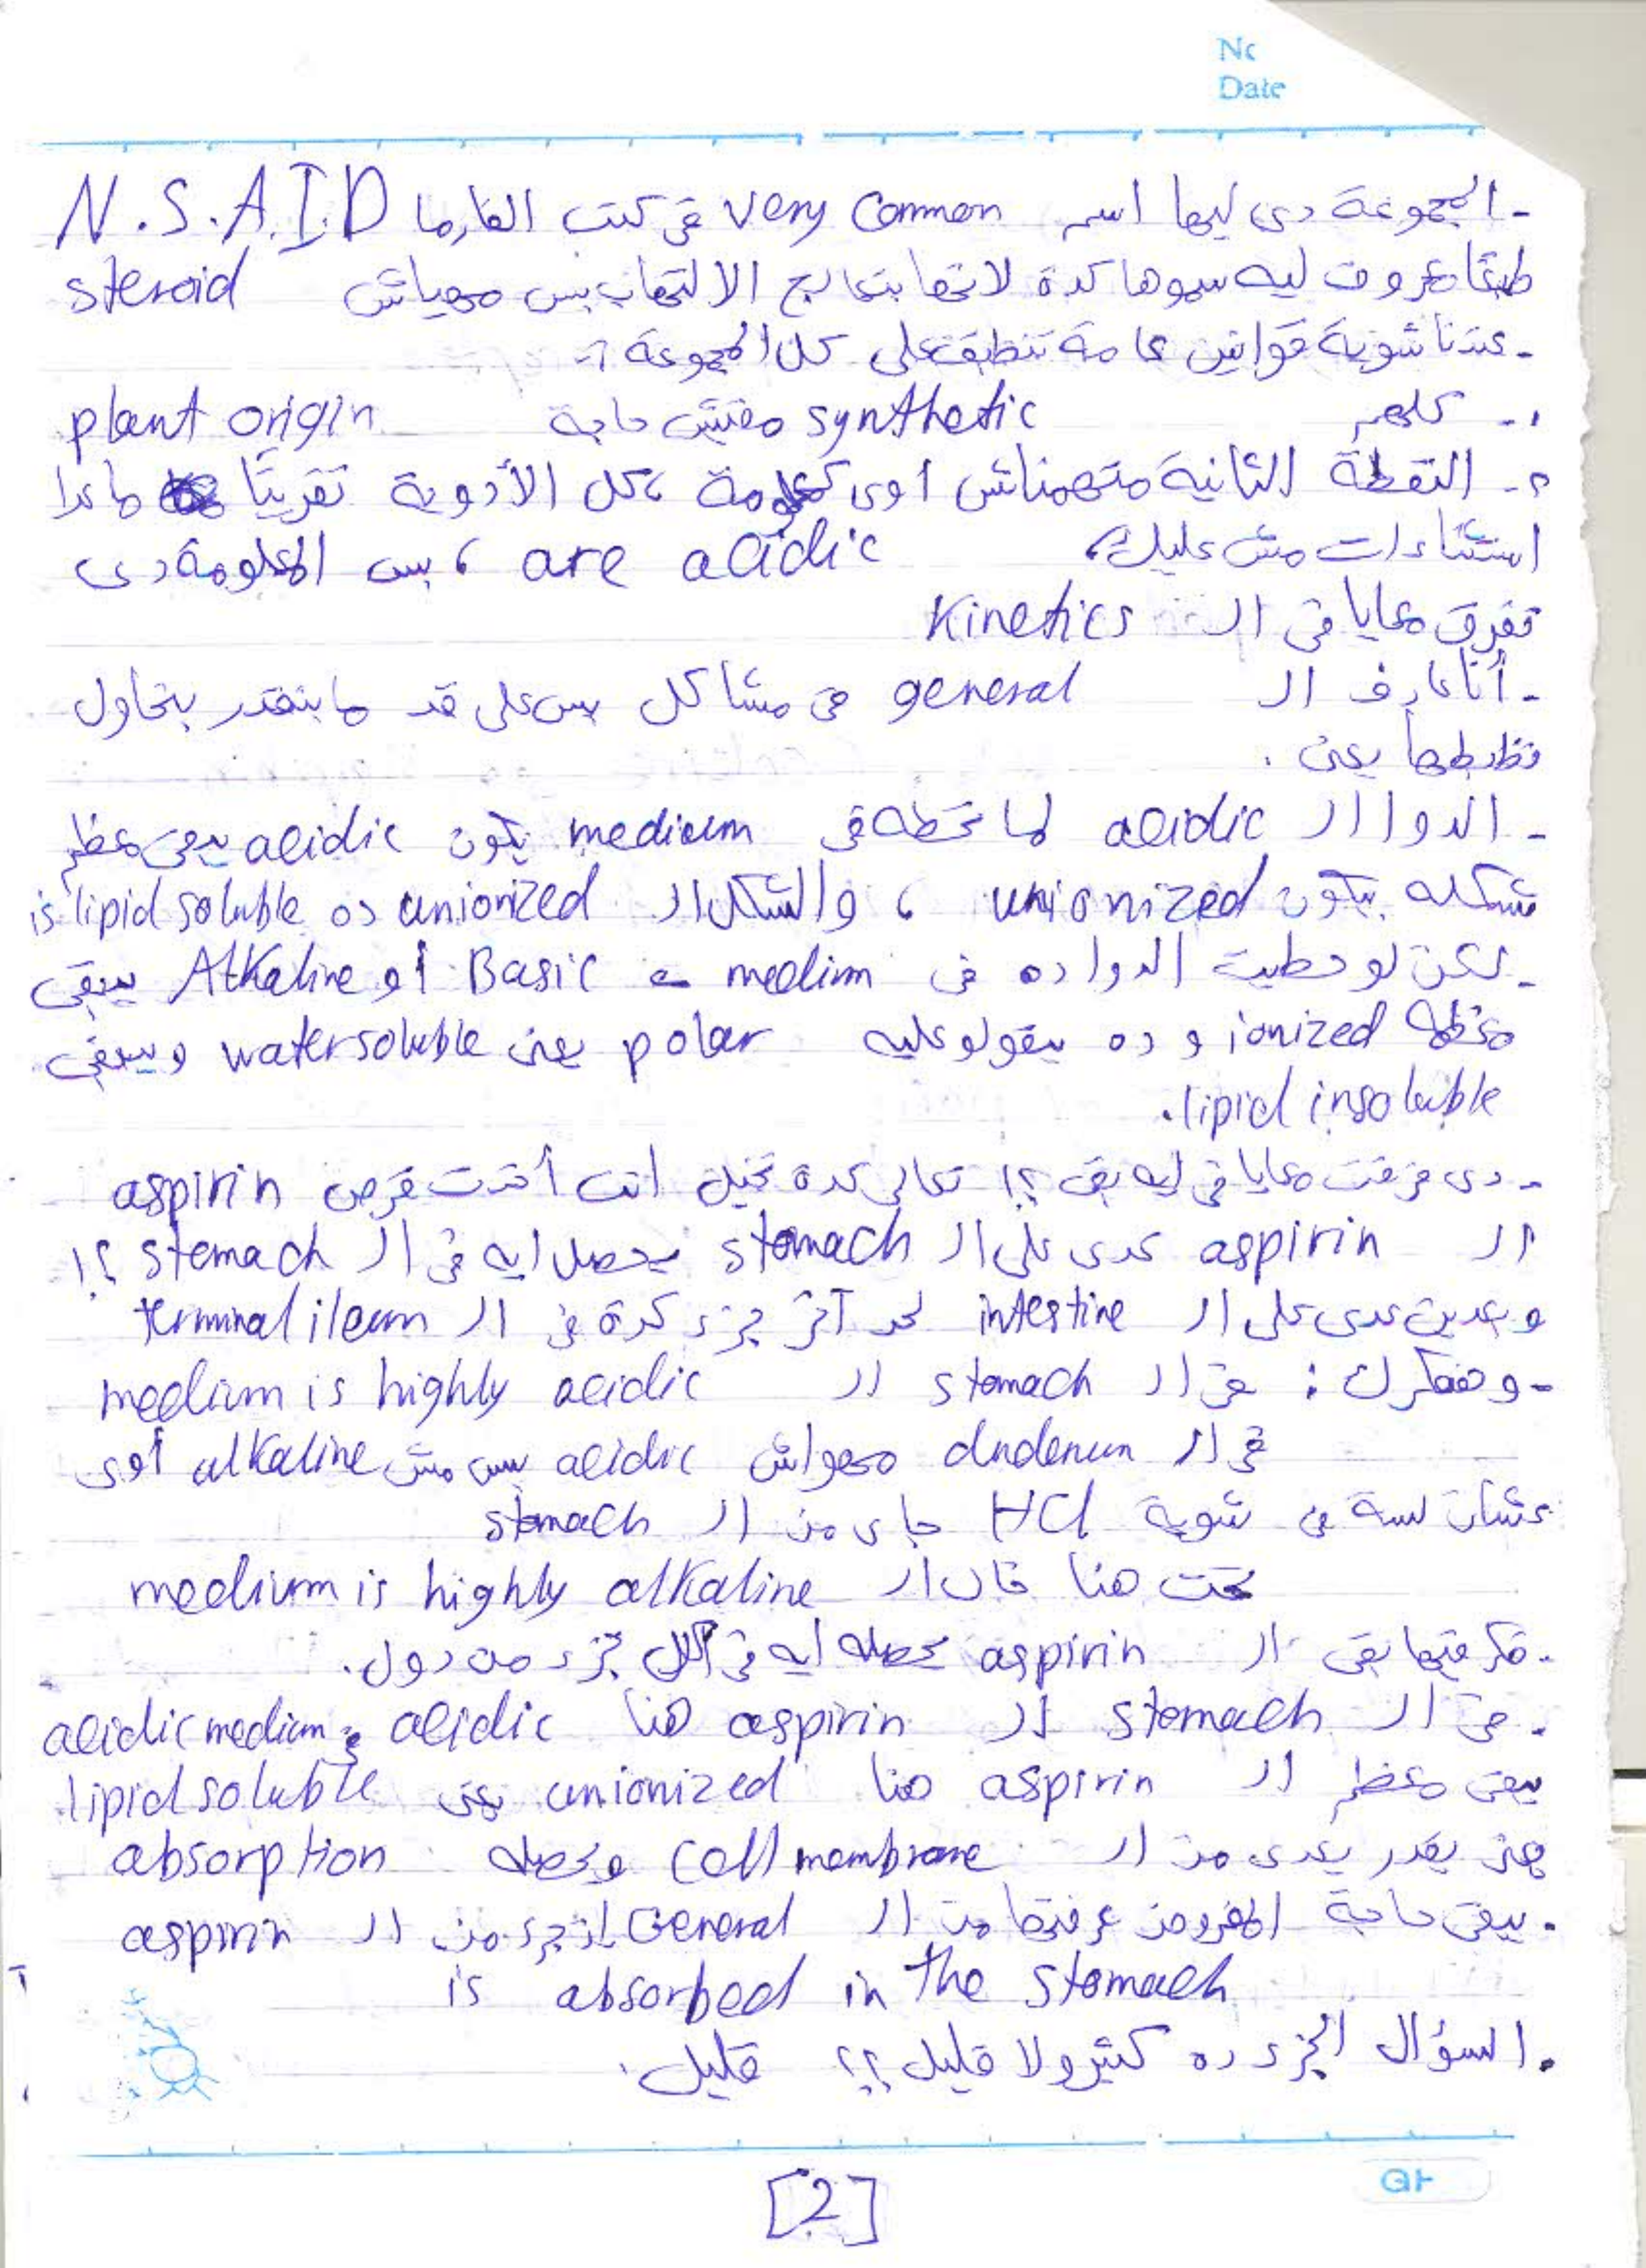 No
Date
- المجموعة دى ليها اسم very common فى كتب الفارما N.S.A.I.D
طبعًا معروف ليه سموها كدة لانها بتعالج الالتهاب بس مهياش steroid
- عندنا شوية قوانين عامة تنطبق على كل المجموعة :-
١- كلهم synthetic مفيش حاجة plant origin
٢- النقطة الثانية متهمناش اوى كمعلومة ، كل الأدوية تقريبًا ماعدا
استثناءات مش عليك، are acidic ، بس المعلومة دى
تفرق معايا فى ال Kinetics
- أنا عارف ال general فى مشاكل بس على قد ما بنقدر بنحاول
نظبطها يعنى .
- الدوا ال acidic لما تحطه فى medium يكون acidic يبقى معظم
شكله بيكون unionized ، والشكل ال unionized ده is lipid soluble
- لكن لو حطيت الدوا ده فى medium Basic أو Alkaline يبقى
معظمه ionized و ده بيقولو عليه polar يعنى water soluble ويبقى
lipid insoluble.
- دى فرقت معايا فى ايه بقى ؟! تعالى كدة تخيل انت أخدت قرص aspirin
ال aspirin عدى على ال stomach يحصل ايه فى ال stomach ؟!
وبعدين عدى على ال intestine لحد آخر جزء كدة فى ال terminal ileum
- وهفكرك : فى ال stomach ال medium is highly acidic
فى ال dudenum مهواش acidic بس مش alkaline أوى
عشان لسة فى شوية HCl جاى من ال stomach
تحت هنا قال ال medium is highly alkaline
- فكر فيها بقى ال aspirin يحصله ايه فى كل جزء من دول.
- فى ال stomach ال aspirin هنا acidic فى acidic medium
يبقى معظم ال aspirin هنا unionized يعنى lipid soluble
يعنى يقدر يعدى من ال cell membrane ويحصله absorption
- يبقى حاجة المفروض عرفتها من ال General ان جزء من ال aspirin
is absorbed in the stomach
- السؤال الجزء ده كتير ولا قليل ؟؟ قليل.
[2]